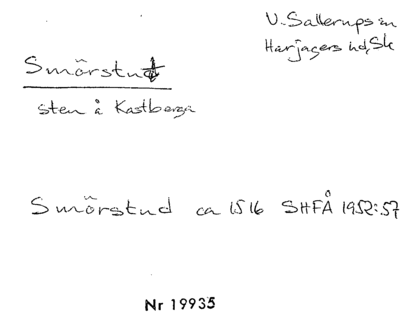 V. Sallerups sn
Harjagers hd, Sk
Smörstud
sten å Kastberga
Smörstud ca 1516 SHFÅ 1952:57
Nr 19935